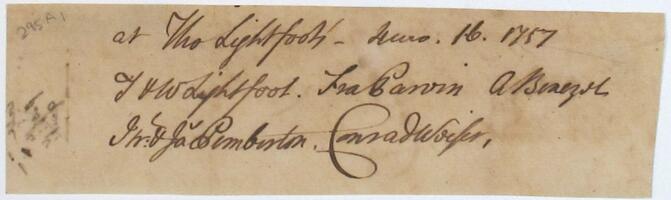 295A1
at Tho Lightfoots - 4mo. 16. 1757
T & W Lightfoot. Fra Parvin A Benezet
Isr. & Ja.s Pemberton. Conrad Weiser,